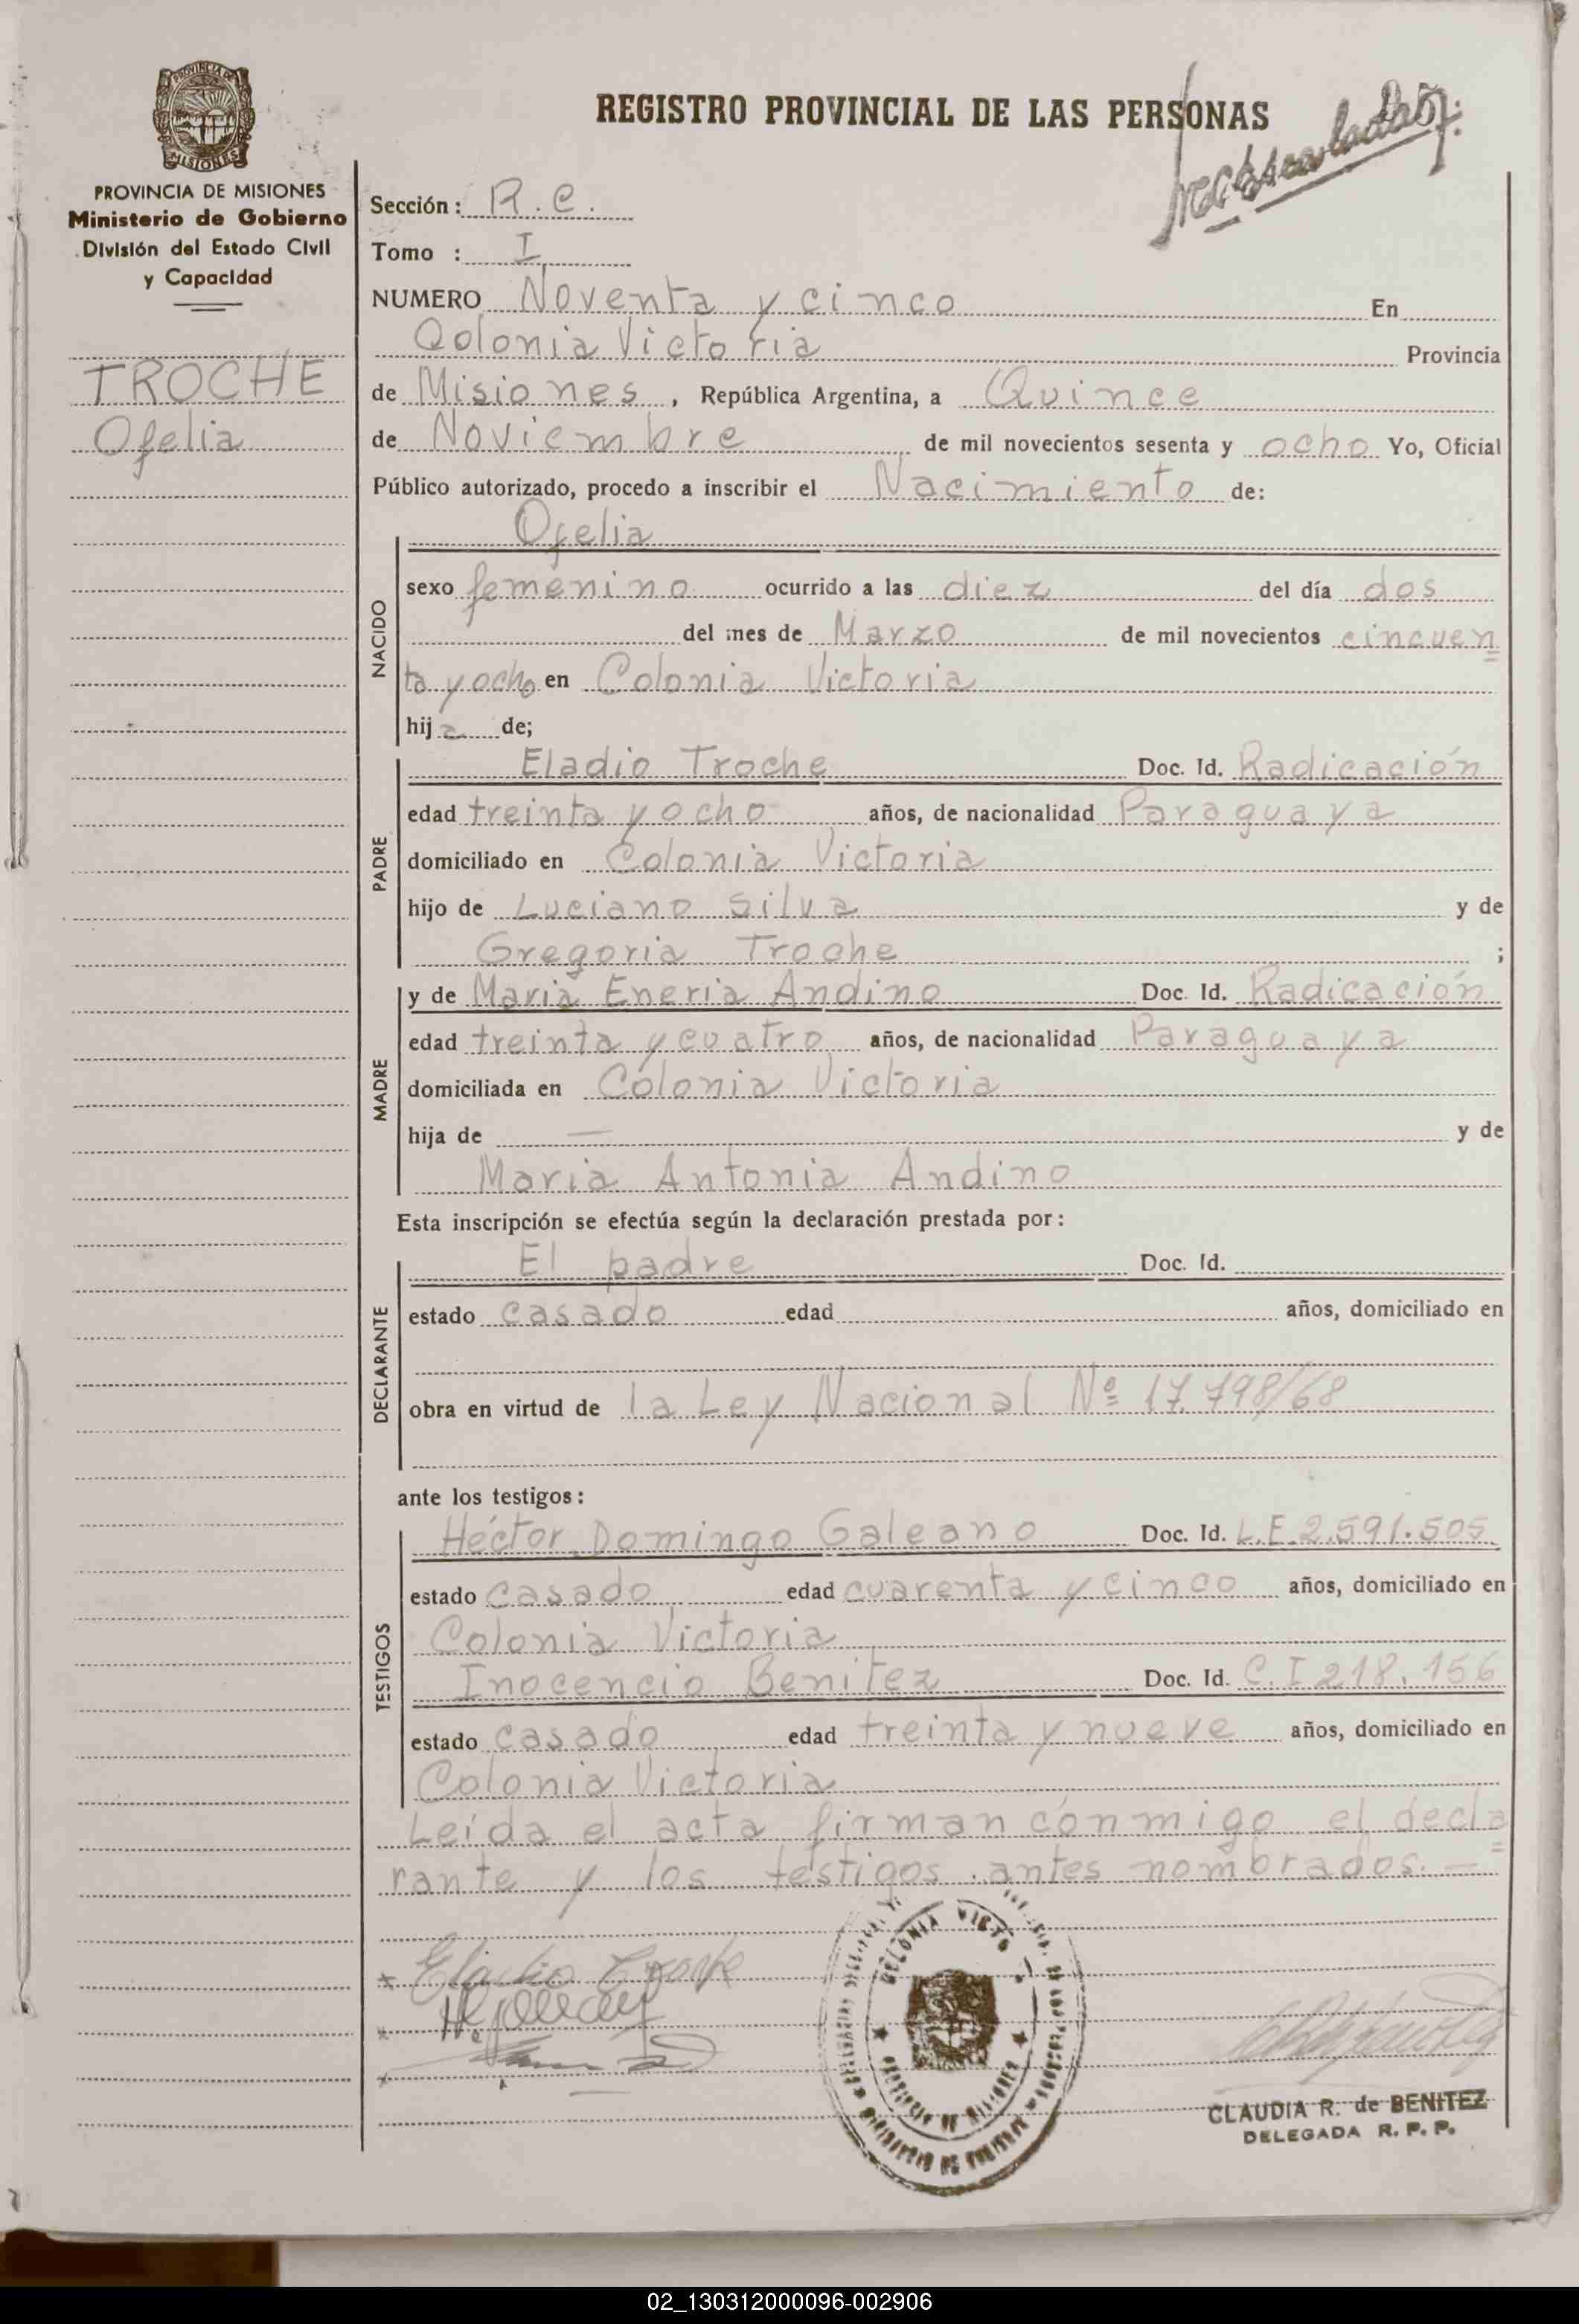 PROVINCIA DE
MISIONES
PROVINCIA DE MISIONES
Ministerio de Gobierno
División del Estado Civil
y Capacidad
TROCHE
Ofelia
REGISTRO PROVINCIAL DE LAS PERSONAS
Sección: R.C.
Tomo : I
NUMERO Noventa y cinco En
Colonia Victoria Provincia
de Misiones, República Argentina, a Quince
de Noviembre de mil novecientos sesenta y ocho Yo, Oficial
Público autorizado, procedo a inscribir el Nacimiento de:
Ofelia
NACIDO
sexo femenino ocurrido a las diez del día dos
del mes de Marzo de mil novecientos cincuen=
ta y ocho en Colonia Victoria
hija de;
PADRE
Eladio Troche Doc. Id. Radicación
edad treinta y ocho años, de nacionalidad Paraguaya
domiciliado en Colonia Victoria
hijo de Luciano Silva y de
Gregoria Troche ;
MADRE
y de Maria Eneria Andino Doc. Id. Radicación
edad treinta y cuatro años, de nacionalidad Paraguaya
domiciliada en Colonia Victoria
hija de — y de
Maria Antonia Andino
Esta inscripción se efectúa según la declaración prestada por:
DECLARANTE
El padre Doc. Id.
estado casado edad años, domiciliado en
obra en virtud de la Ley Nacional Nº 17.798/68
ante los testigos:
TESTIGOS
Héctor Domingo Galeano Doc. Id. L.E. 2.591.505
estado casado edad cuarenta y cinco años, domiciliado en
Colonia Victoria
Inocencio Benitez Doc. Id. C.I 218.156
estado casado edad treinta y nueve años, domiciliado en
Colonia Victoria
Leída el acta firman conmigo el decla=
rante y los testigos antes nombrados.—
Eladio Troche
COLONIA VICTO
PROVINCIA DE MISIONES
CLAUDIA R. de BENITEZ
DELEGADA R. P. P.
02_130312000096-002906